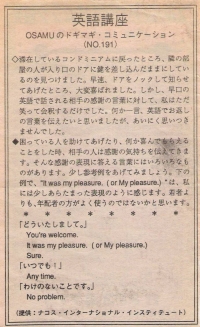 英語講座
OSAMUのドギマギ・コミュニケーション
(NO.191)
◇滞在しているコンドミニアムに戻ったところ、隣の部
屋の人が入り口のドアに鍵を差し込んだままにしている
のを見つけました。早速、ドアをノックして知らせ
てあげたところ、大変喜ばれました。しかし、早口の
英語で話される相手の感謝の言葉に対して、私はただ
笑って会釈するだけでした。何か一言、英語でお返し
の言葉を伝えたいと思いましたが、あいにく思いつき
ませんでした。
◆困っている人を助けてあげたり、何か喜んでもらえる
ことをした時、相手の人は感謝の気持ちを伝えてきま
す。そんな感謝の表現に答える言葉にはいろいろなも
のがあります。少し参考例をあげてみましょう。下の
例で、"It was my pleasure. ( or My pleasure.) "は、私
には少しあらたまった表現のように感じます。若者よ
りも、年配者の方がよく使うのではないかと思います。
* * * * * * *
「どういたしまして。」
You're welcome.
It was my pleasure. ( or My pleasure.)
Sure.
「いつでも！」
Any time.
「わけのないことです。」
No problem.
(提供:ナコス・インターナショナル・インスティテュート)